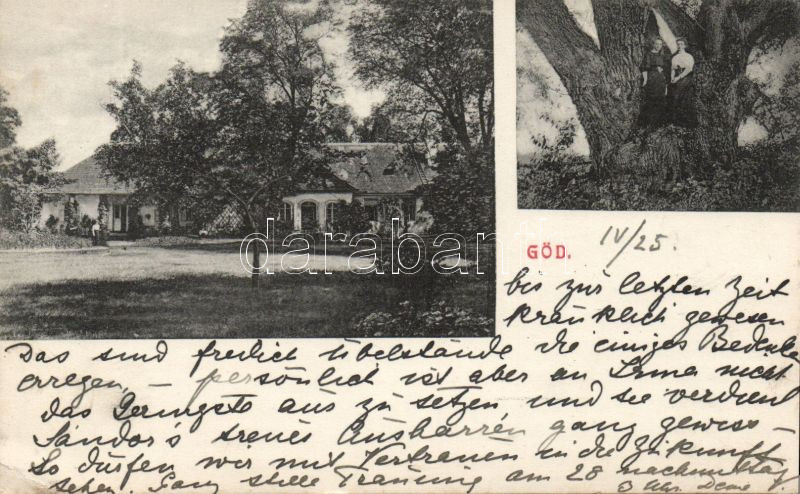 GÖD. IV/25.
bis zur letzten Zeit
kränklich gewesen
Das sind freilich Übelstände die einiges Bedenken
erregen, – persönlich ist aber an Irma nicht
das Geringste aus zu setzen und sie verdient
Sándor's treues Ausharren ganz gewiss –
So dürfen wir mit Vertrauen in die Zukunft
sehen. Ganz stille Trauung am 28 nachmittag
3 Uhr.
darabanth